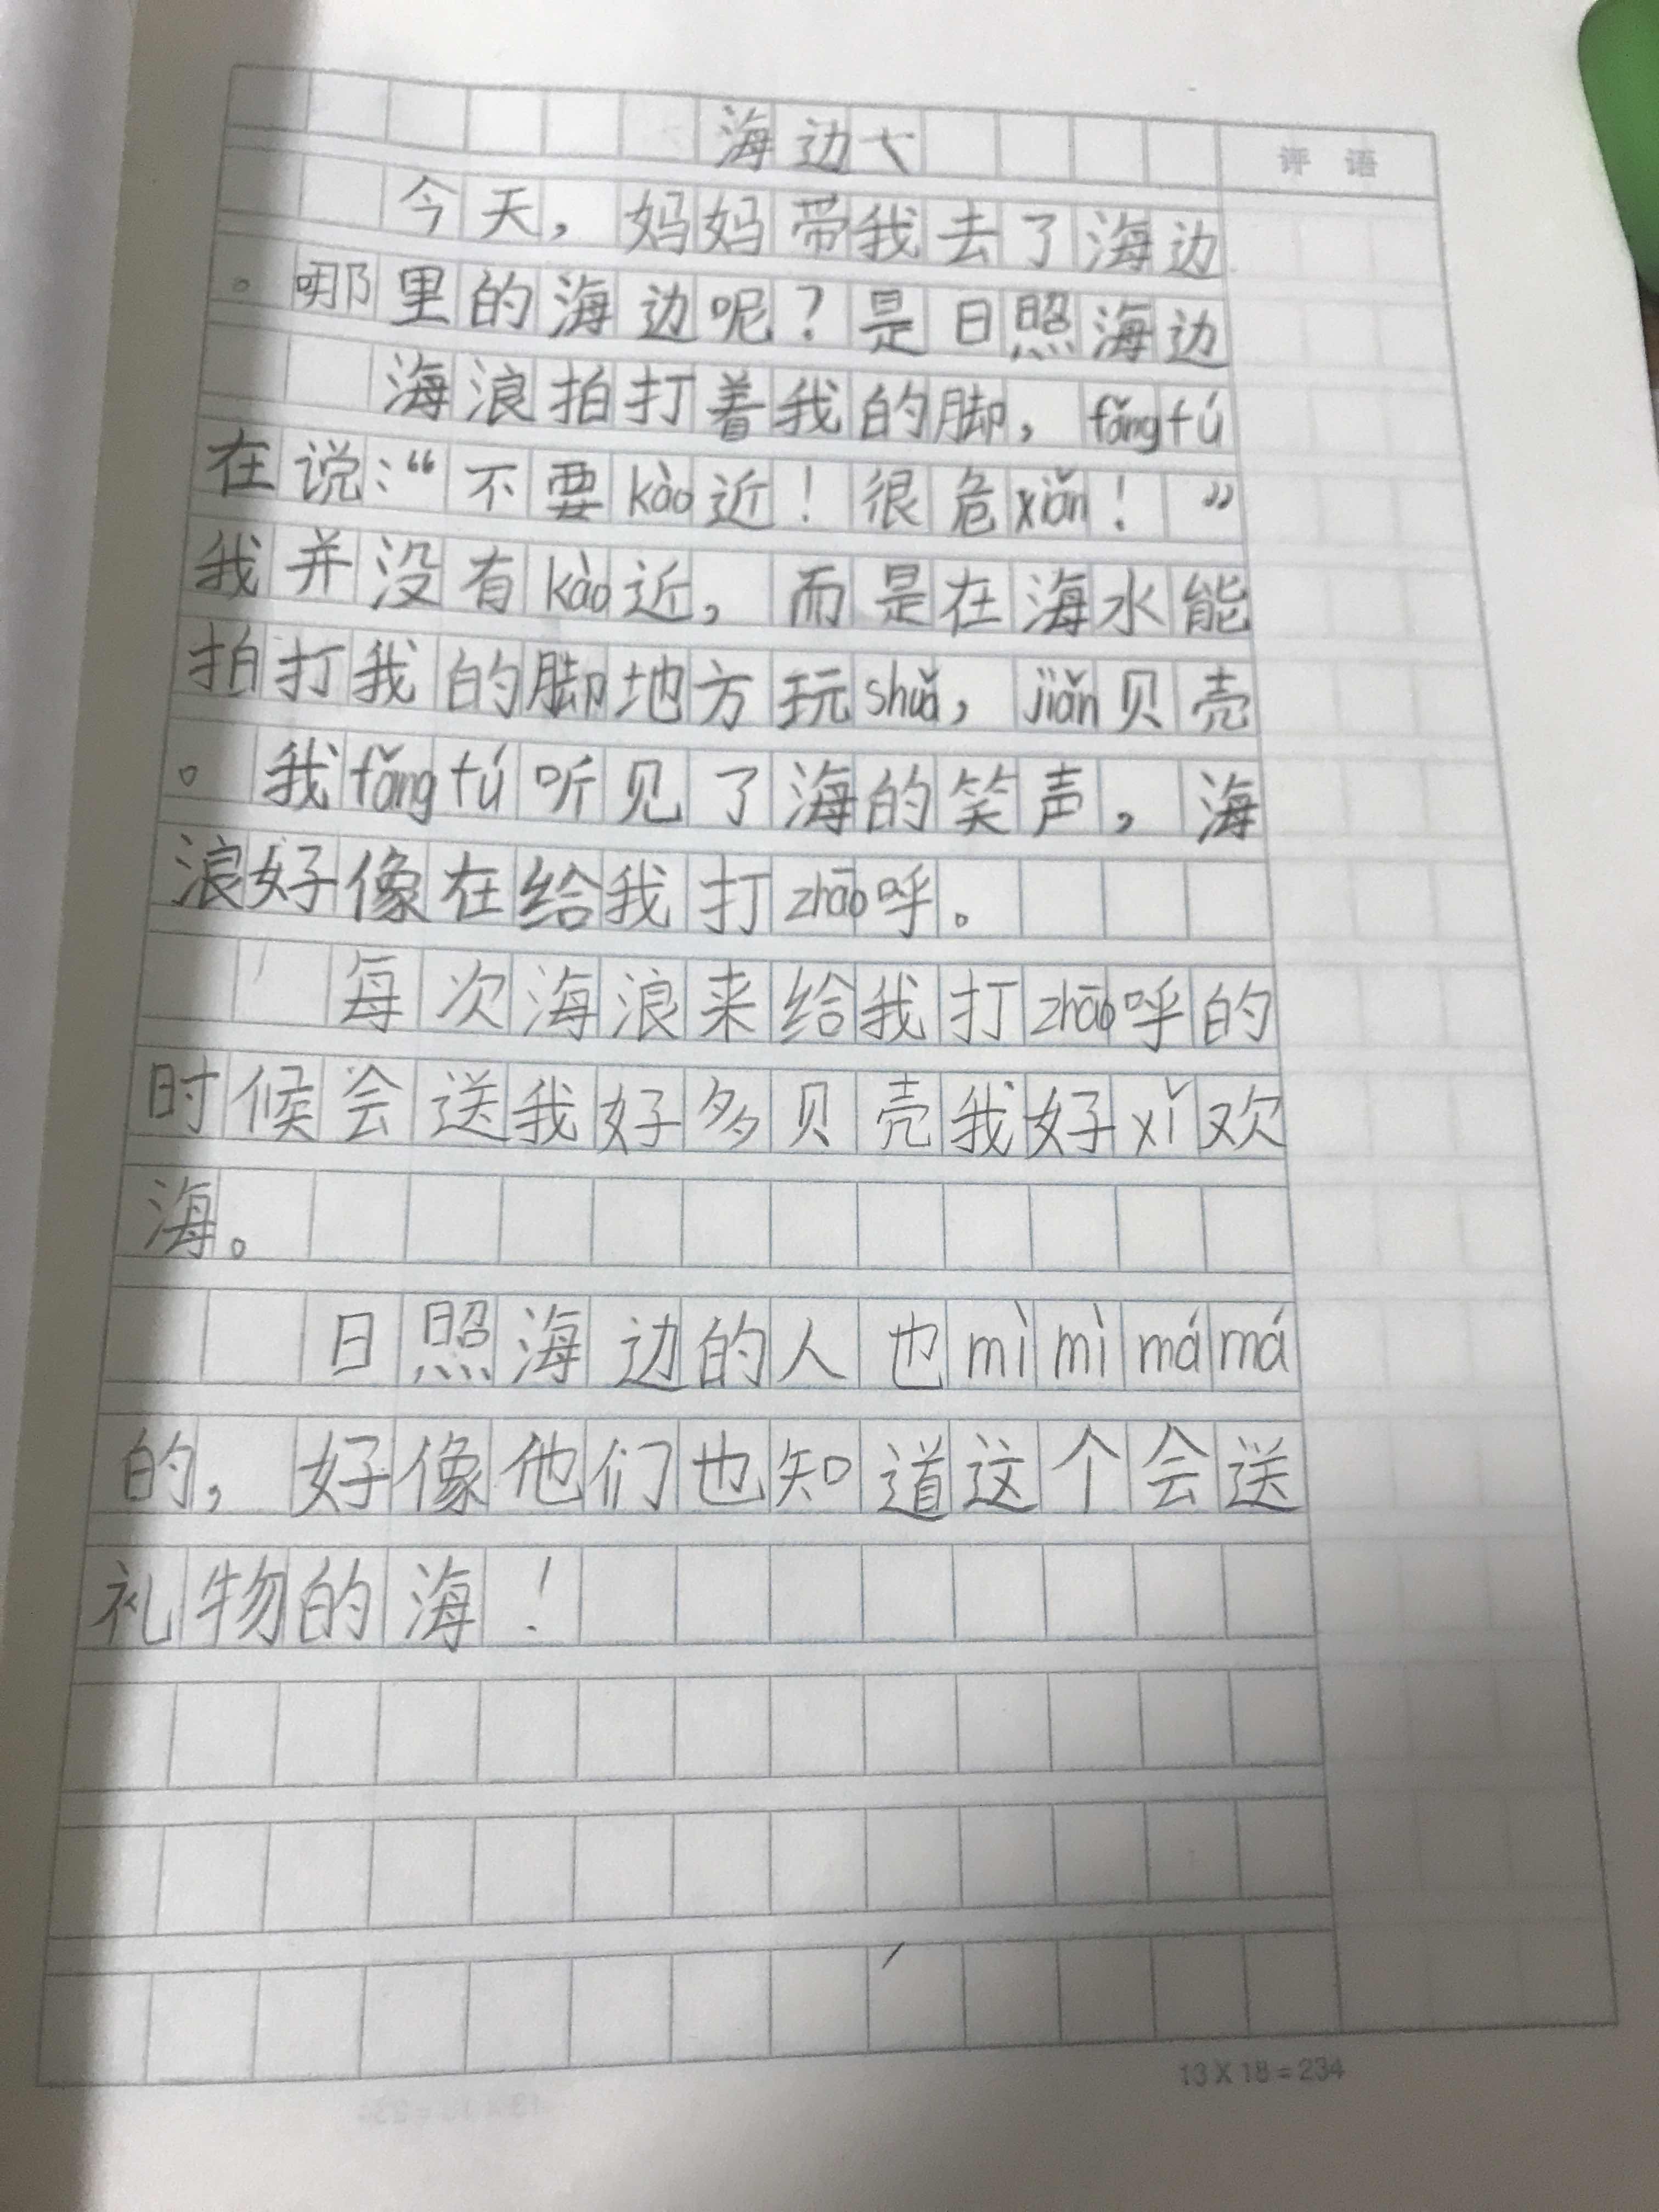 海边
评 语
今天，妈妈带我去了海边
。哪里的海边呢？是日照海边
海浪拍打着我的脚，fǎng fú
在说：“不要kào近！很危xiǎn！”
我并没有kào近，而是在海水能
拍打我的脚地方玩shuǎ，jiǎn贝壳
。我fǎng fú听见了海的笑声，海
浪好像在给我打zhāo呼。
每次海浪来给我打zhāo呼的
时候会送我好多贝壳我好xǐ欢
海。
日照海边的人也mì mì má má
的，好像他们也知道这个会送
礼物的海！
13×18=234